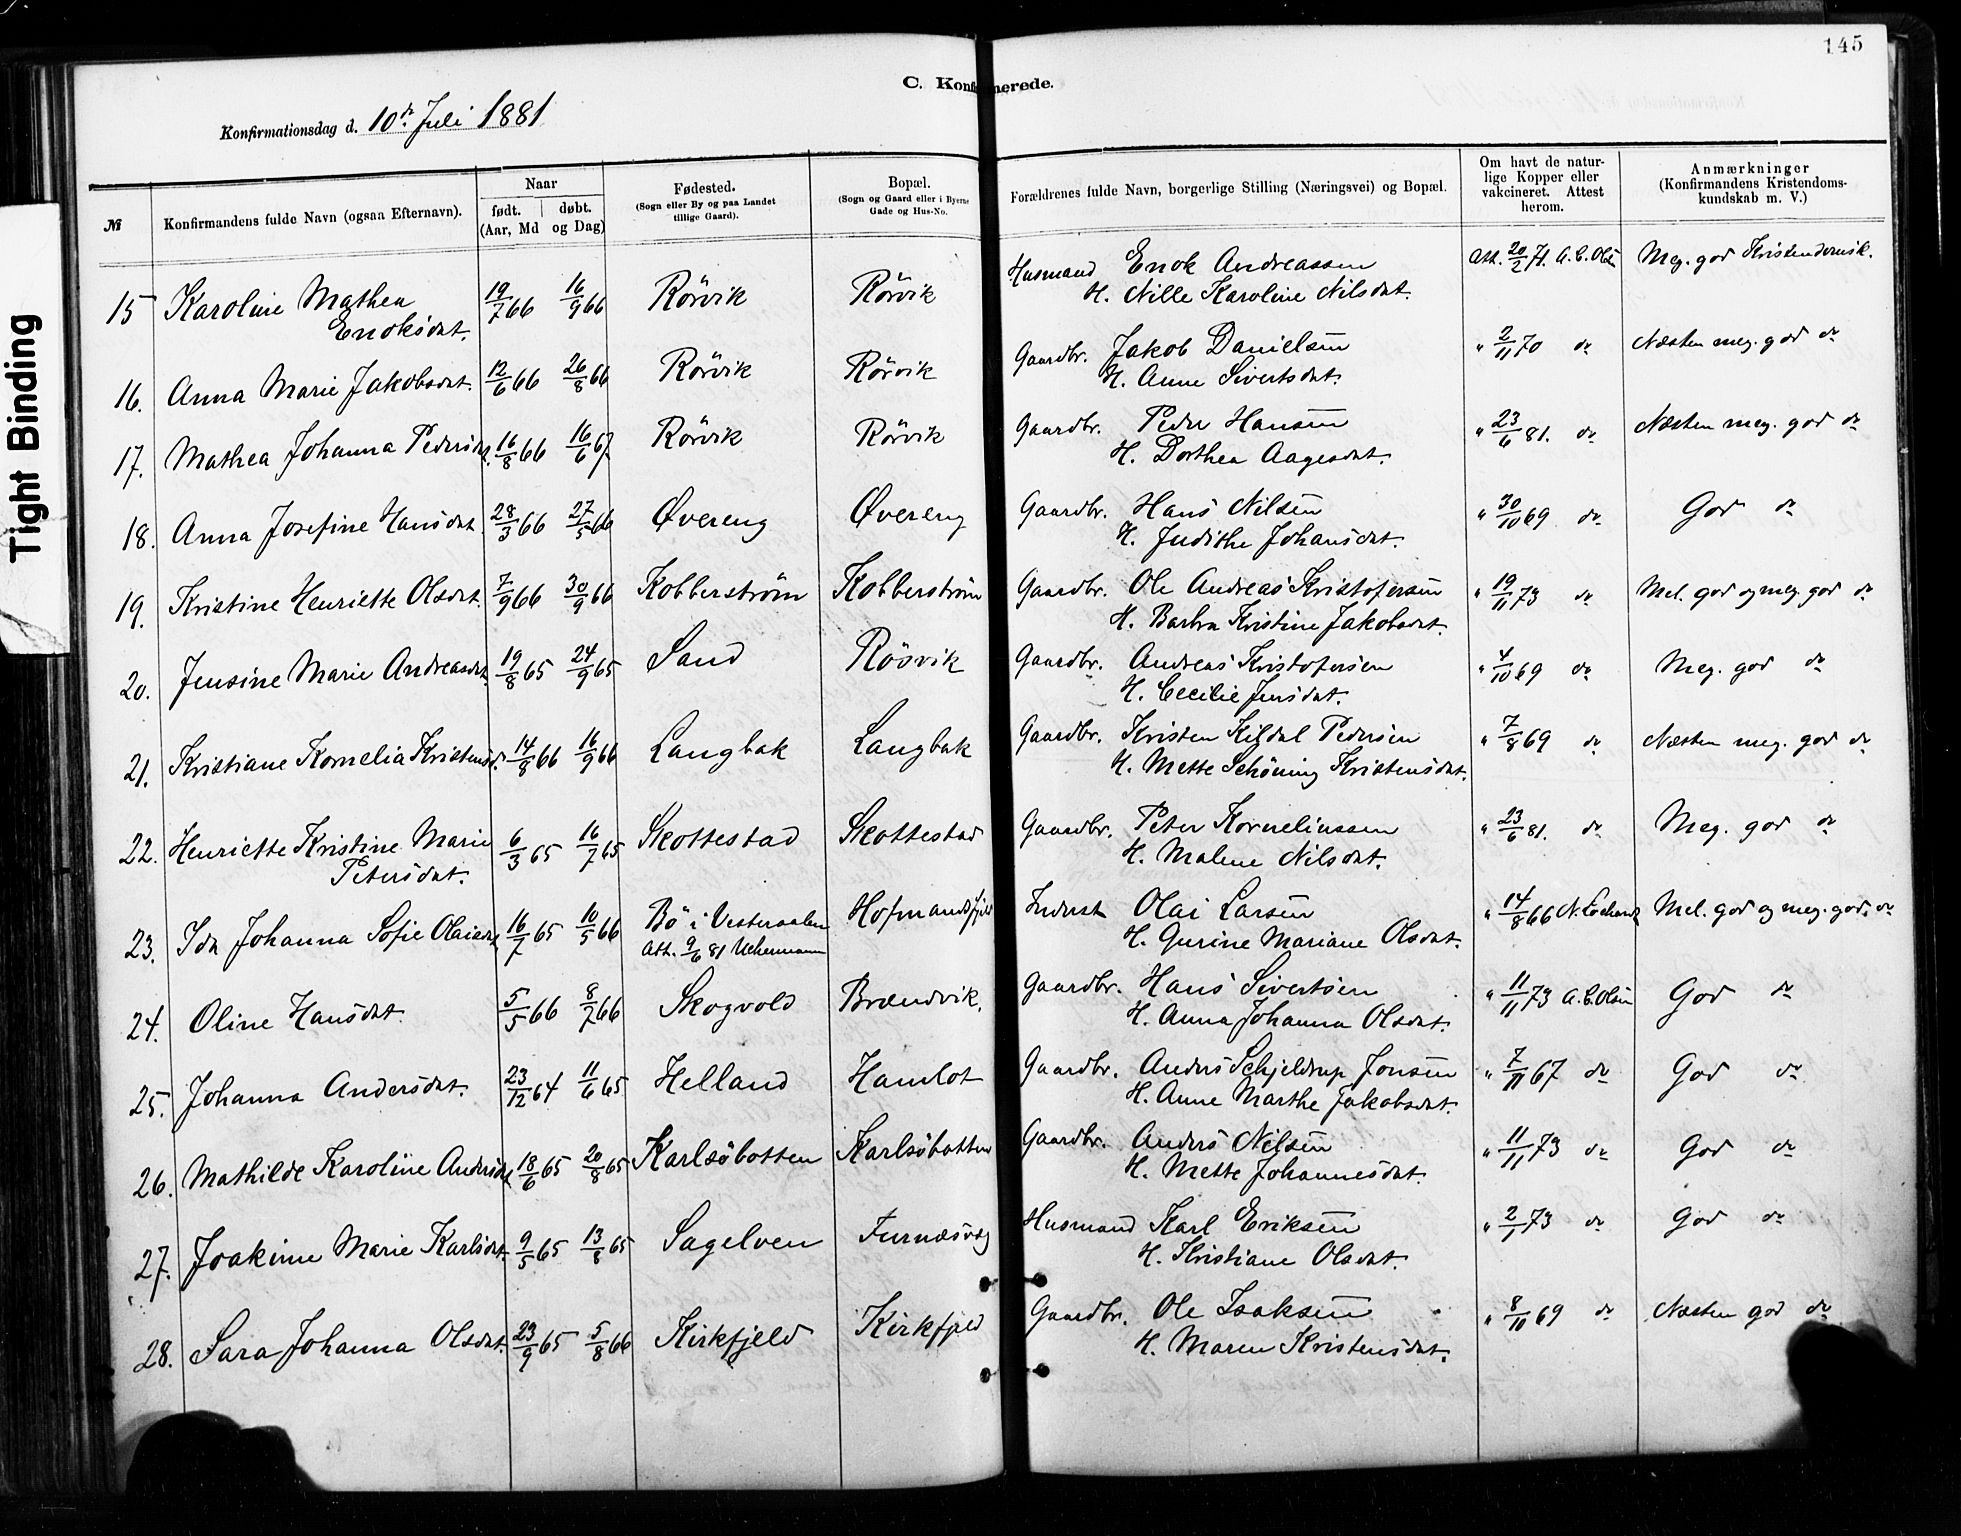 145
Tight Binding
C. Konfirmerede.
Konfirmationsdag d. 10de Juli 1881
№
Konfirmandens fulde Navn (ogsaa Efternavn).
Naar
født. | døbt.
(Aar, Md og Dag)
Fødested.
(Sogn eller By og paa Landet
tillige Gaard).
Bopæl.
(Sogn og Gaard eller i Byerne
Gade og Hus-No.
Forældrenes fulde Navn, borgerlige Stilling (Næringsvei) og Bopæl.
Om havt de natur-
lige Kopper eller
vakcineret. Attest
herom.
Anmærkninger
(Konfirmandens Kristendoms-
kundskab m. V.)
15 Karoline Mathea 19/7 66 16/9 66 Rörvik Rörvik Husmand Enok Andreassen Att. 20/2 71. A. C. Olsen Meg. god Kristendomsk.
Enoksdat. H. Nille Karoline Nilsdat.
16. Anna Marie Jakobsdat. 12/6 66 26/8 66 Rörvik Rörvik Gaardbr. Jakob Danielsen " 2/11 70 do Næsten meg. god do
H. Anne Sivertsdat.
17. Mathea Johanna Pedersdat. 16/8 66 16/6 67 Rörvik Rörvik Gaardbr. Peder Hansen " 23/6 81. do Næsten meg. god do
H. Dorthea Aagesdat.
18. Anna Josefine Hansdat 28/3 66 27/5 66 Øvereng Øvereng Gaardbr. Hans Nilsen " 30/10 69 do God do
H. Judithe Johansdat.
19. Kristine Henriette Olsdat. 7/9 66 30/9 66 Kobberström Kobberström Gaardbr. Ole Andreas Kristofersen " 19/11 73 do Mel. god og meg. god do
H. Barbra Kristine Jakobsdat.
20. Jensine Marie Andreasdat. 19/8 65 24/9 65 Sand Rösvik Gaardbr. Andreas Kristofersen " 4/10 69 do Meg. god do
H. Cecilie Jensdat.
21. Kristiane Kornelia Kristensd. 14/8 66 16/9 66 Langbak Langbak Gaardbr. Kristen Kildal Pedersen " 7/8 69 do Næsten meg. god do
H. Mette Schöning Kristensdat.
22. Henriette Kristine Marie 6/3 65 16/7 65 Skottestad Skottestad Gaardbr. Peter Korneliussen " 23/6 81. do Meg. god do
Petersdat. H. Malene Nilsdat.
23. Ida Johanna Sofie Olaisd 16/7 65 10/5 66 Bö i Vesteraalen Hofmandsfjeld Inderst Olai Larsen " 14/8 66 Mel. god og meg. god. do
Att. 9/6 81 Uchermann H. Gurine Mariane Olsdat.
24. Oline Hansdat. 5/5 66 8/7 66 Skogvold Brændvik. Gaardbr. Hans Sivertsen " 11/11 73 A. C. Olsen God do
H. Anna Johanna Olsdat.
25. Johanna Andersdat. 23/12 64 11/6 65 Helland Hamlot Gaardbr. Anders Schjeldrup Jonsen " 7/11 67 do God do
H. Anne Marthe Jakobsdat.
26. Mathilde Karoline Andersd 18/6 65 20/8 65 Karlsöbotten Karlsöbotten Gaardbr. Anders Nilsen " 11/11 73 do God do
H. Mette Johannesdat.
27. Joakime Marie Karlsdat. 9/5 65 13/8 65 Sagelven Furnæsvag Husmand Karl Eriksen " 2/1 73 do God do
H. Kristiane Olsdat.
28. Sara Johanna Olsdat. 23/9 65 5/8 66 Kirkfjeld Kirkfjeld Gaardbr. Ole Isaksen " 8/10 69 do Næsten god do
H. Maren Kristensdat.